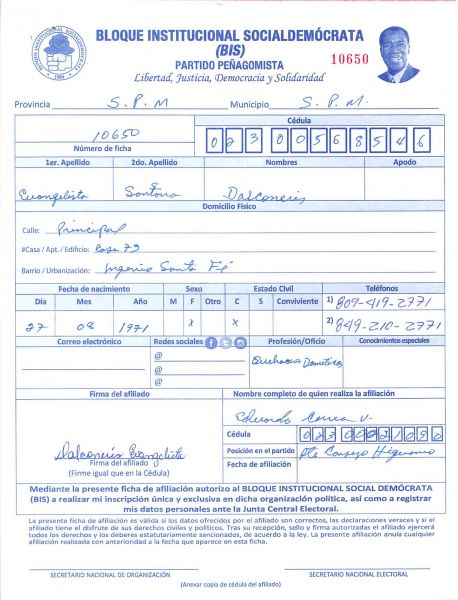 BLOQUE INSTITUCIONAL SOCIALDEMÓCRATA
(BIS)
PARTIDO PEÑAGOMISTA
10650
Libertad, Justicia, Democracia y Solidaridad
Provincia S. P. M Municipio S. P. M.
10650
Número de ficha
Cédula
0 2 3 0 0 5 6 8 5 4 6
1er. Apellido 2do. Apellido Nombres Apodo
Evangelista Santana Dalconeris
Domicilio Físico
Calle: Principal
#Casa / Apt. / Edificio: Casa 73
Barrio / Urbanización: Ingenio Santa Fé
Fecha de nacimiento Sexo Estado Civil Teléfonos
Día Mes Año M F Otro C S Conviviente 1) 809-419-2771
27 08 1971 x x 2) 849-210-2771
Correo electrónico Redes sociales Profesión/Oficio Conocimientos especiales
@
@
@
Firma del afiliado Nombre completo de quien realiza la afiliación
Eduardo Correa V.
Cédula 023
Dalconeris Evangelista
Firma del afiliado)
(Firme igual que en la Cédula)
Posición en el partido
Fecha de afiliación
Mediante la presente ficha de afiliación autorizo al BLOQUE INSTITUCIONAL SOCIAL DEMÓCRATA
(BIS) a realizar mi inscripción única y exclusiva en dicha organización política, así como a registrar
mis datos personales ante la Junta Central Electoral.
La presente ficha de afiliación es válida si los datos ofrecidos por el afiliado son correctos, las declaraciones veraces y si el
afiliado tiene el disfrute de sus derechos civiles y políticos. Tras su recepción, sello y firma autorizados el afiliado ejercerá
todos los derechos y los deberes estatutariamente sancionados, de acuerdo a la ley. La presente afiliación anula cualquier
afiliación realizada con anterioridad a la fecha que aparece en esta ficha.
SECRETARIO NACIONAL DE ORGANIZACIÓN SECRETARIO NACIONAL ELECTORAL
(Anexar copia de cédula del afiliado)